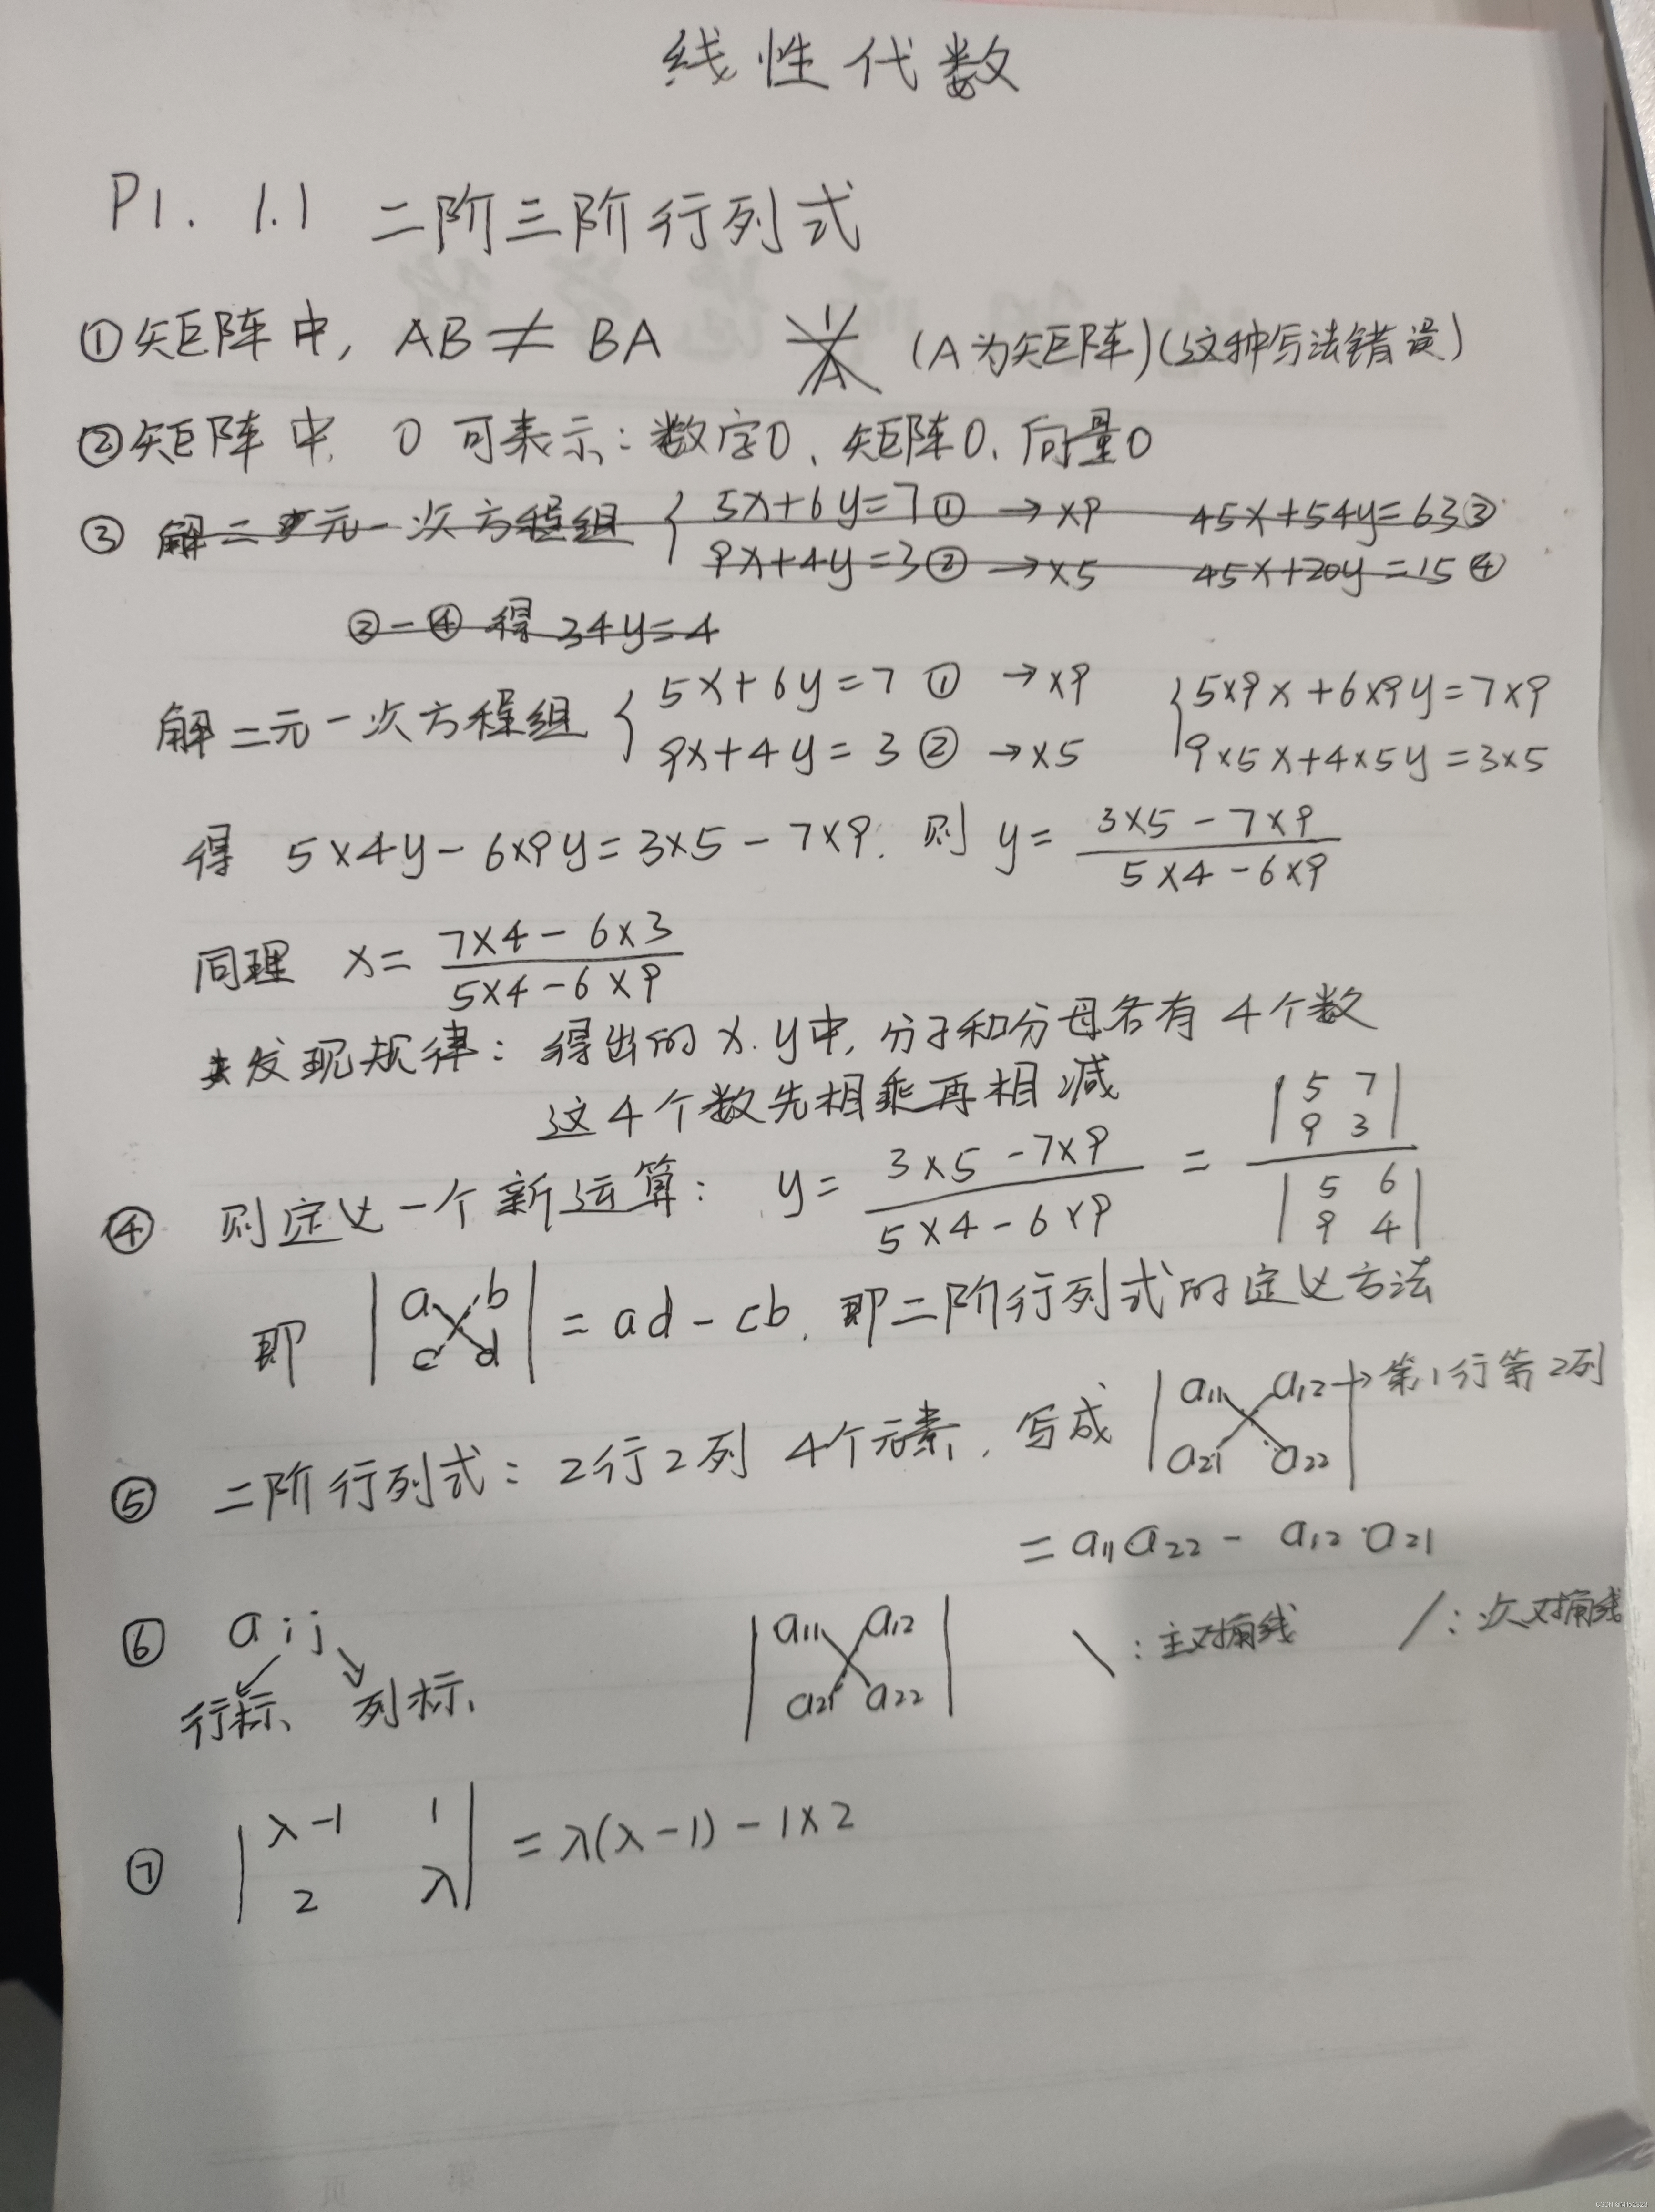 线性代数
P1. 1.1 二阶三阶行列式
①矩阵中, AB ≠ BA 1/A (A为矩阵)(这种写法错误)
②矩阵中, 0 可表示: 数字0、矩阵0、向量0
③ 解二元一次方程组 { 5x+6y=7① →×9 45x+54y=63③
9x+4y=3② →×5 45x+20y=15④
③-④ 得 34y=4
解二元一次方程组 { 5x+6y=7 ① →×9 { 5×9x+6×9y=7×9
9x+4y=3 ② →×5 9×5x+4×5y=3×5
得 5×4y-6×9y=3×5-7×9. 则 y= (3×5-7×9)/(5×4-6×9)
同理 x= (7×4-6×3)/(5×4-6×9)
发现规律: 得出的x.y中, 分子和分母各有4个数
这4个数先相乘再相减
④ 则定义一个新运算: y= (3×5-7×9)/(5×4-6×9) = |5 7; 9 3| / |5 6; 9 4|
即 |a b; c d| = ad-cb. 即二阶行列式的定义方法
⑤ 二阶行列式: 2行2列 4个元素, 写成 |a11 a12; a21 a22| →第1行第2列
= a11a22 - a12·a21
⑥ aij |a11 a12; a21 a22| \ : 主对角线 / : 次对角线
行标、 列标
⑦ |λ-1 1; 2 λ| = λ(λ-1)-1×2